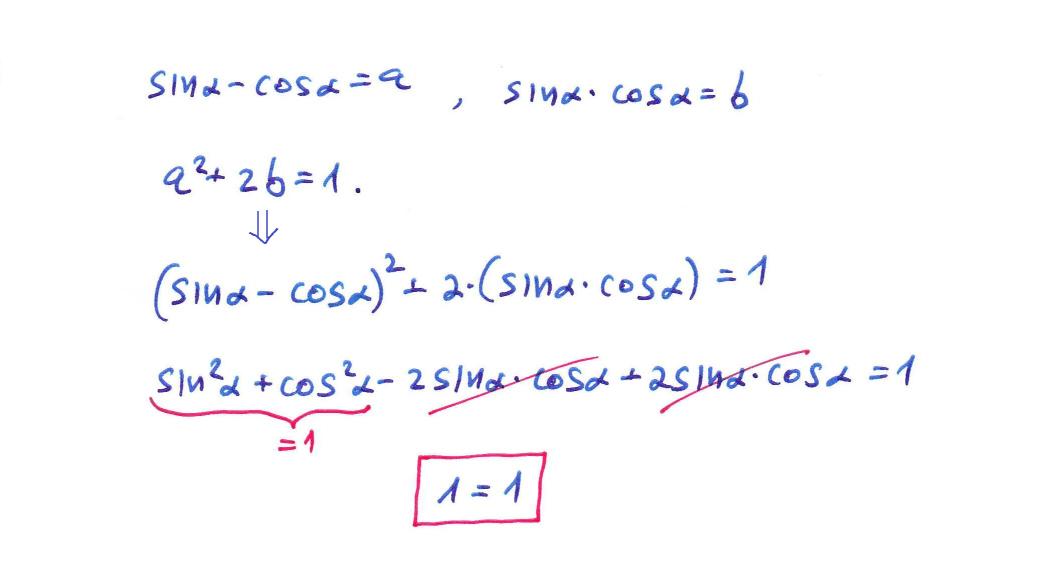 sinα - cosα = a , sinα · cosα = b
a² + 2b = 1.
⇓
(sinα - cosα)² + 2·(sinα · cosα) = 1
sin²α + cos²α - 2sinα · cosα + 2sinα · cosα = 1
= 1
1 = 1